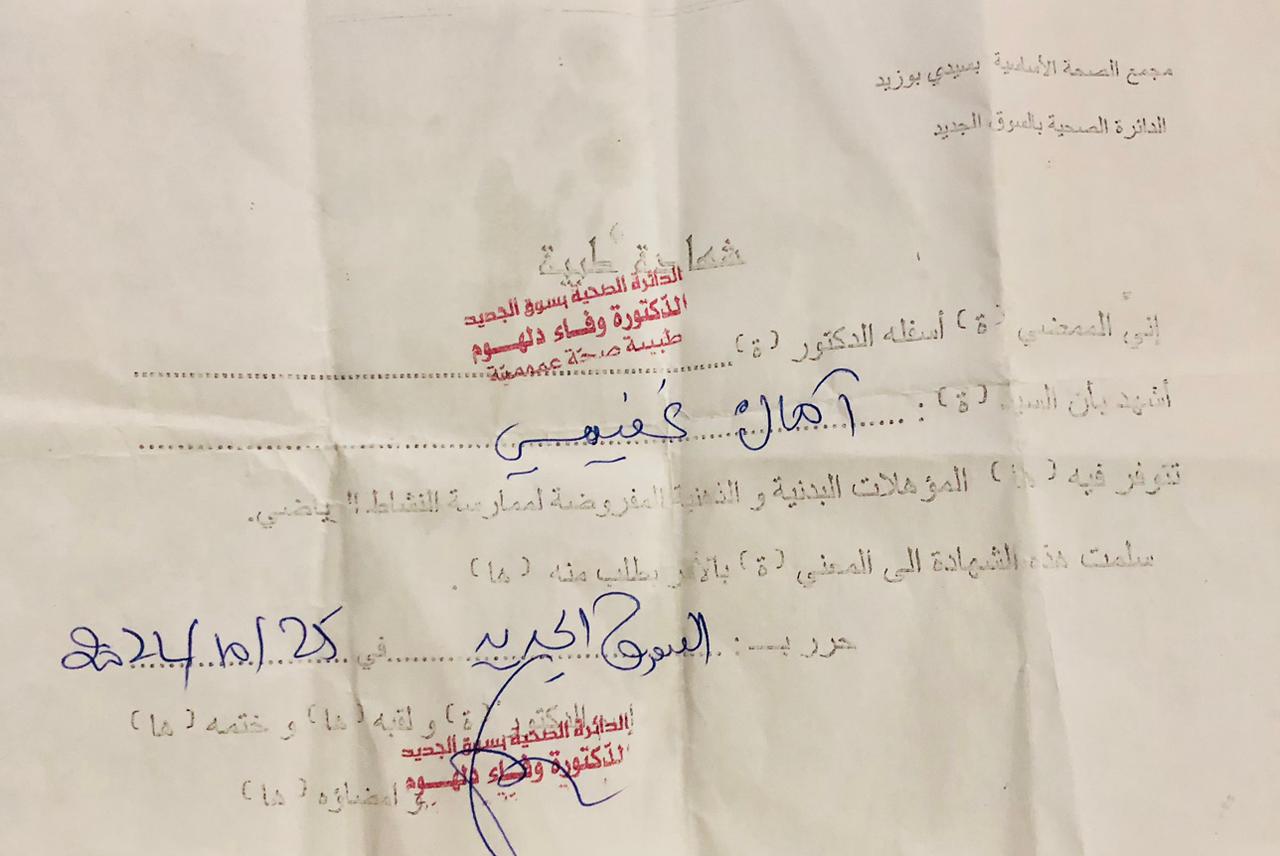 مجمع الصحة الأساسية بسيدي بوزيد
الدائرة الصحية بالسوق الجديد
شهادة طبية
الدائرة الصحية بسوق الجديد
الدّكتورة وفاء دلهوم
طبيبة صحة عمومية
إنيّ الممضي (ة) أسفله الدكتور (ة)
أشهد بأن السيد (ة) : آمال
تتوفر فيه (ها) المؤهلات البدنية و الذهنية المفروضة لممارسة النشاط الرياضي.
سلمت هذه الشهادة الى المعني (ة) بالأمر بطلب منه (ها) .
حرر بـ : السوق الجديد في 25/10/2024
الدكتور (ة) و لقبه (ها) و ختمه (ها)
الدائرة الصحية بسوق الجديد
الدّكتورة وفاء دلهوم
و امضاؤه (ها)